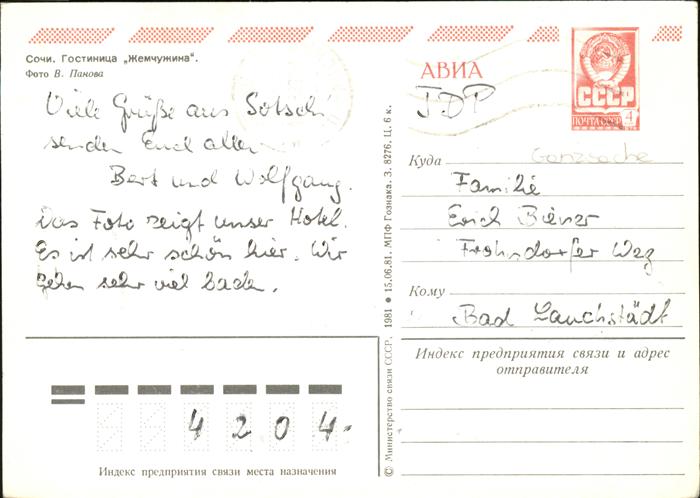 Сочи. Гостиница „Жемчужина".
Фото В. Панова
Viele Grüße aus Sotschi
senden Euch allen
Bert und Wolfgang.
Das Foto zeigt unser Hotel.
Es ist sehr schön hier. Wir
gehen sehr viel baden.
АВИА
СССР
ПОЧТА СССР 4
Ganzsache
Куда
Familie
Erich Biener
Frohndorfer Weg
Кому
Bad Lauchstädt
Индекс предприятия связи и адрес
отправителя
4204
Индекс предприятия связи места назначения
© Министерство связи СССР, 1981 • 15.06.81. МПФ Гознака. З. 8276. Ц. 6 к.